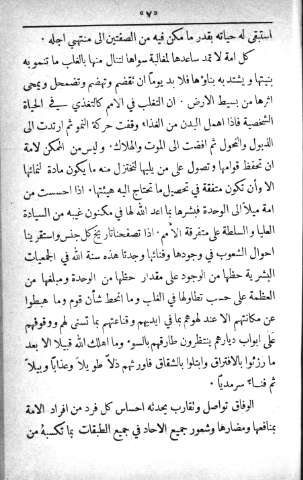 « ٧ »
استبقى له حياته بقدر ما مكن فيه من الصفتين الى منتهى اجله .
كل امة لا تمد ساعدها لمغالبة سواها لتنال منها بالغلب ما تنمو به
بنيتها ويشتد به بناؤها فلا بد يوماً ان تقضم وتهضم وتضمحل ويمحى
اثرها من بسيط الارض . ان التغلب في الامم كالتغذي في الحياة
الشخصية فاذا اهمل البدن من الغذاء وقفت حركة النمو ثم ارتدت الى
الذبول والنحول ثم افضت الى الموت والهلاك . وليس من الممكن لامة
ان تحفظ قوامها وتصول على من يليها لتختزل منه ما يكون مادة لنمائها
الا وأن تكون متفقة في تحصيل ما تحتاج اليه هيئتها . اذا احسست من
امة ميلاً الى الوحدة فبشرها بما اعد الله لها في مكنون غيبه من السيادة
العليا والسلطة على متفرقة الأمم . اذا تصفحنا تاريخ كل جنس واستقرينا
احوال الشعوب في وجودها وفنائها وجدنا هذه سنة الله في الجمعيات
البشرية حظها من الوجود على مقدار حظها من الوحدة ومبلغها من
العظمة على حسب تطاولها في الغلب وما انحط شأن قوم وما هبطوا
عن مكانتهم الا عند لهوهم بما في ايديهم وقناعتهم بما تسنى لهم ووقوفهم
على ابواب ديارهم ينتظرون طارقهم بالسوء وما اهلك الله قبيلا الا بعد
ما رزئوا بالافتراق وابتلوا بالشقاق فاورثهم ذلاً طويلاً وعذاباً وبيلاً
ثم فناء سرمدياً .
الوفاق تواصل وتقارب يحدثه احساس كل فرد من افراد الامة
بمنافعها ومضارها وشعور جميع الاحاد في جميع الطبقات بما تكسبه من